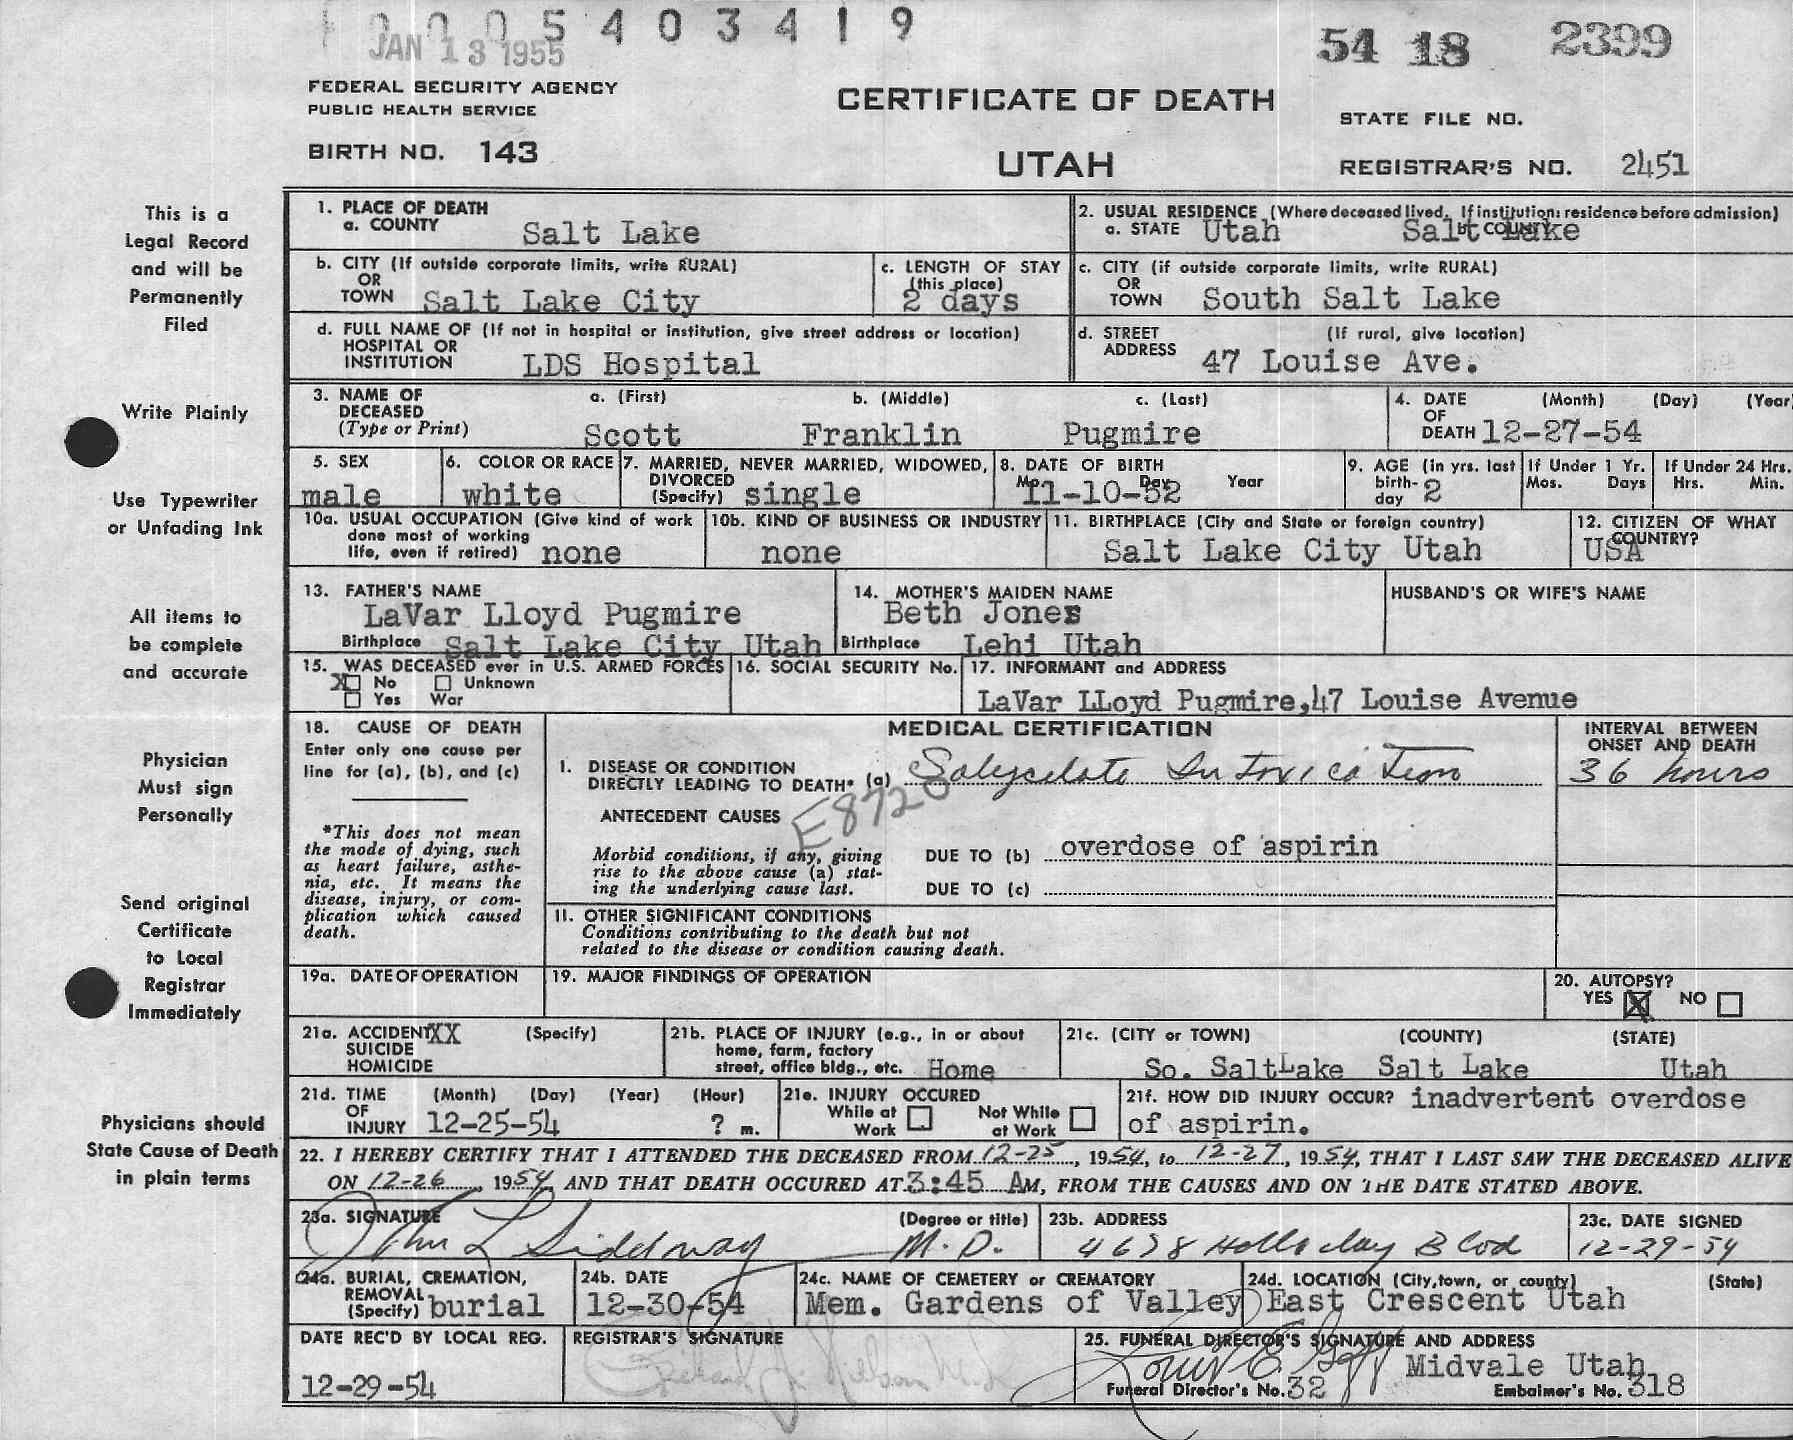 0 0 0 5 4 0 3 4 1 9
JAN 13 1955
54 18 2399
FEDERAL SECURITY AGENCY
PUBLIC HEALTH SERVICE
CERTIFICATE OF DEATH
STATE FILE NO.
BIRTH NO. 143
UTAH
REGISTRAR'S NO. 2451
This is a
Legal Record
and will be
Permanently
Filed
Write Plainly
Use Typewriter
or Unfading Ink
All items to
be complete
and accurate
Physician
Must sign
Personally
Send original
Certificate
to Local
Registrar
Immediately
Physicians should
State Cause of Death
in plain terms
1. PLACE OF DEATH
a. COUNTY Salt Lake
2. USUAL RESIDENCE (Where deceased lived. If institution: residence before admission)
a. STATE Utah b. COUNTY Salt Lake
b. CITY (If outside corporate limits, write RURAL)
OR
TOWN Salt Lake City
c. LENGTH OF STAY
(this place)
2 days
c. CITY (if outside corporate limits, write RURAL)
OR
TOWN South Salt Lake
d. FULL NAME OF (If not in hospital or institution, give street address or location)
HOSPITAL OR
INSTITUTION LDS Hospital
d. STREET (If rural, give location)
ADDRESS 47 Louise Ave.
3. NAME OF a. (First) b. (Middle) c. (Last)
DECEASED
(Type or Print) Scott Franklin Pugmire
4. DATE (Month) (Day) (Year
OF
DEATH 12-27-54
5. SEX
male
6. COLOR OR RACE
white
7. MARRIED, NEVER MARRIED, WIDOWED,
DIVORCED
(Specify) single
8. DATE OF BIRTH
Mo. Day Year
11-10-52
9. AGE (in yrs. last
birth-
day 2
If Under 1 Yr.
Mos. Days
If Under 24 Hrs.
Hrs. Min.
10a. USUAL OCCUPATION (Give kind of work
done most of working
life, even if retired) none
10b. KIND OF BUSINESS OR INDUSTRY
none
11. BIRTHPLACE (City and State or foreign country)
Salt Lake City Utah
12. CITIZEN OF WHAT
COUNTRY?
USA
13. FATHER'S NAME
LaVar Lloyd Pugmire
Birthplace Salt Lake City Utah
14. MOTHER'S MAIDEN NAME
Beth Jones
Birthplace Lehi Utah
HUSBAND'S OR WIFE'S NAME
15. WAS DECEASED ever in U.S. ARMED FORCES
X No Unknown
Yes War
16. SOCIAL SECURITY No.
17. INFORMANT and ADDRESS
LaVar LLoyd Pugmire,47 Louise Avenue
18. CAUSE OF DEATH
Enter only one cause per
line for (a), (b), and (c)
*This does not mean
the mode of dying, such
as heart failure, asthe-
nia, etc. It means the
disease, injury, or com-
plication which caused
death.
MEDICAL CERTIFICATION
I. DISEASE OR CONDITION
DIRECTLY LEADING TO DEATH* (a) Salycelate Intoxication
E8720
ANTECEDENT CAUSES
Morbid conditions, if any, giving
rise to the above cause (a) stat-
ing the underlying cause last.
DUE TO (b) overdose of aspirin
DUE TO (c)
II. OTHER SIGNIFICANT CONDITIONS
Conditions contributing to the death but not
related to the disease or condition causing death.
INTERVAL BETWEEN
ONSET AND DEATH
36 hours
19a. DATE OF OPERATION
19. MAJOR FINDINGS OF OPERATION
20. AUTOPSY?
YES X NO
21a. ACCIDENT XX (Specify)
SUICIDE
HOMICIDE
21b. PLACE OF INJURY (e.g., in or about
home, farm, factory
street, office bldg., etc. Home
21c. (CITY or TOWN) (COUNTY) (STATE)
So. SaltLake Salt Lake Utah
21d. TIME (Month) (Day) (Year) (Hour)
OF
INJURY 12-25-54 ? m.
21e. INJURY OCCURED
While at Work Not While at Work
21f. HOW DID INJURY OCCUR? inadvertent overdose
of aspirin.
22. I HEREBY CERTIFY THAT I ATTENDED THE DECEASED FROM 12-25, 1954, to 12-27, 1954, THAT I LAST SAW THE DECEASED ALIVE
ON 12-26, 1954 AND THAT DEATH OCCURED AT 3:45 AM, FROM THE CAUSES AND ON THE DATE STATED ABOVE.
23a. SIGNATURE (Degree or title)
John L Siddoway M.D.
23b. ADDRESS
4678 Holladay Blvd
23c. DATE SIGNED
12-29-54
24a. BURIAL, CREMATION,
REMOVAL
(Specify) burial
24b. DATE
12-30-54
24c. NAME OF CEMETERY or CREMATORY
Mem. Gardens of Valley
24d. LOCATION (City, town, or county) (State)
East Crescent Utah
DATE REC'D BY LOCAL REG.
12-29-54
REGISTRAR'S SIGNATURE
25. FUNERAL DIRECTOR'S SIGNATURE AND ADDRESS
Midvale Utah
Funeral Director's No. 32 Embalmer's No. 318